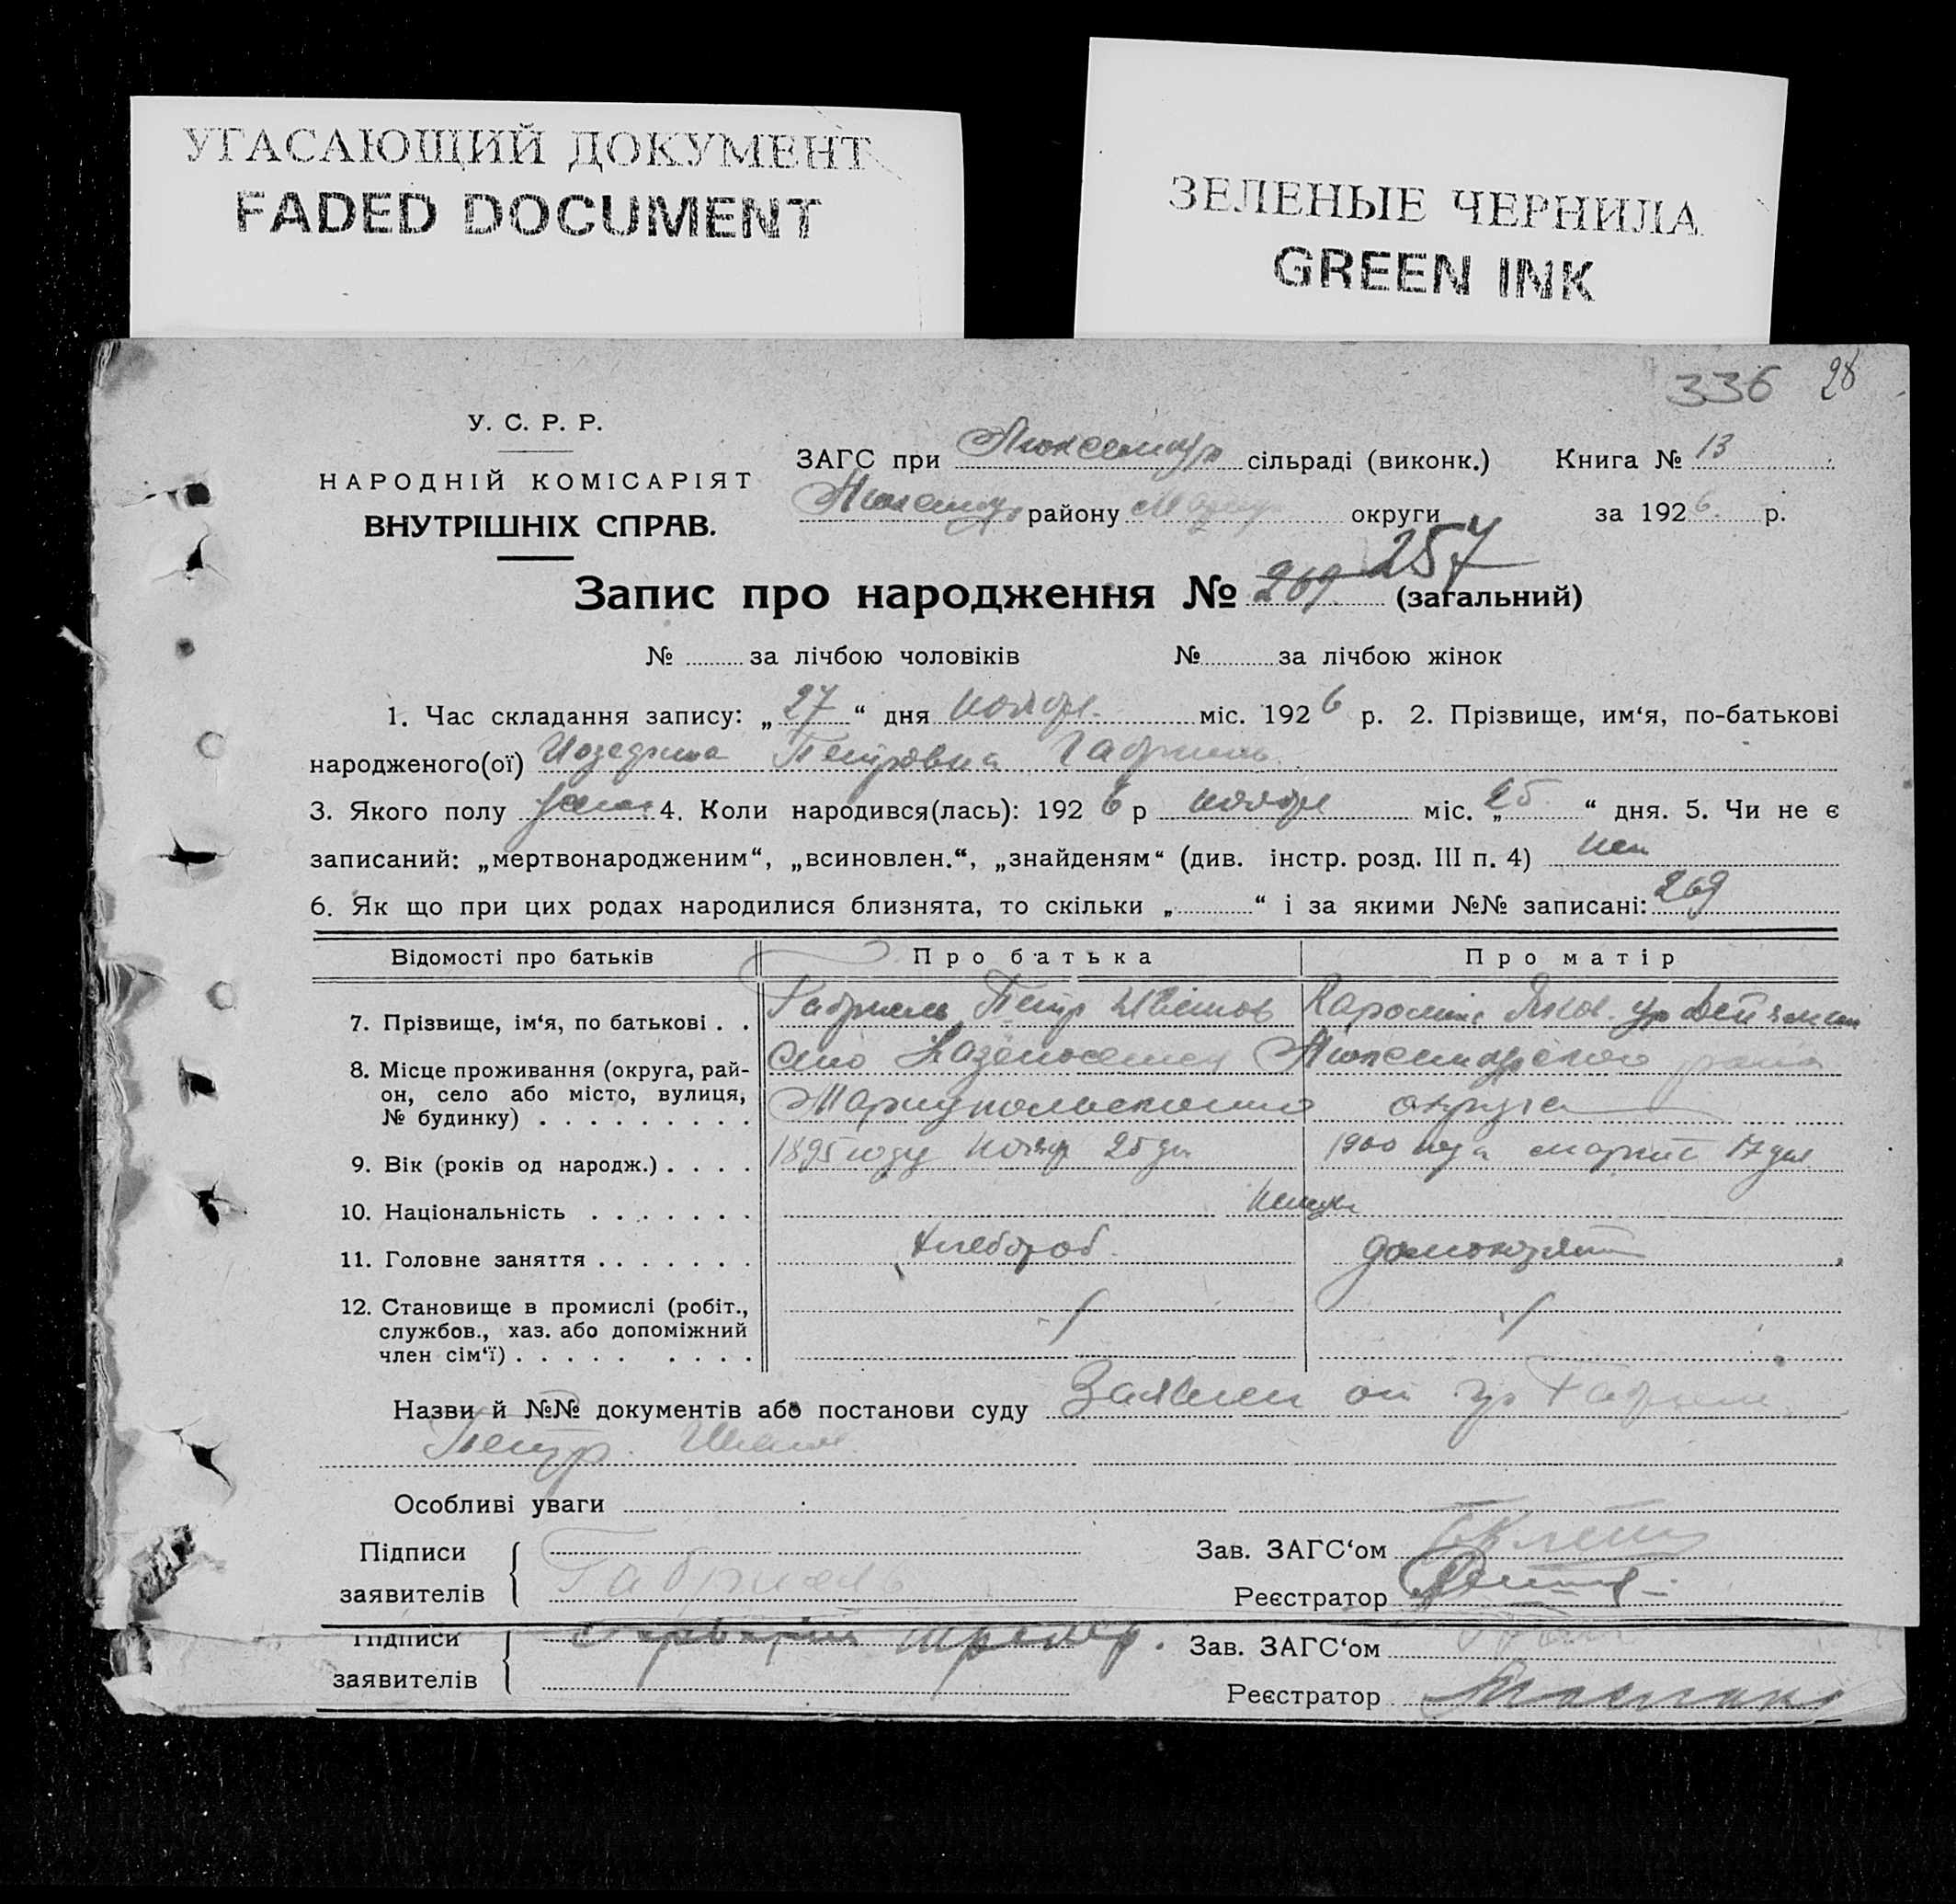 УГАСАЮЩИЙ ДОКУМЕНТ
FADED DOCUMENT
ЗЕЛЕНЫЕ ЧЕРНИЛА
GREEN INK
336 28
У. С. Р. Р.
НАРОДНІЙ КОМІСАРІЯТ
ВНУТРІШНІХ СПРАВ.
ЗАГС при сільраді (виконк.) Книга № 13
району округи за 1926 р.
257
Запис про народження № 269 (загальний)
№ за лічбою чоловіків № за лічбою жінок
1. Час складання запису: „27“ дня ноября міс. 1926 р. 2. Прізвище, им‘я, по-батькові
народженого(ої) Иозефина Петровна Габриель
3. Якого полу жен. 4. Коли народився(лась): 1926 р ноября міс. „25“ дня. 5. Чи не є
записаний: „мертвонародженим“, „всиновлен.“, „знайденям“ (див. інстр. розд. III п. 4) нет
6. Як що при цих родах народилися близнята, то скільки „ “ і за якими №№ записані: 269
Відомості про батьків Про батька Про матір
7. Прізвище, ім‘я, по батькові . . Габриель Петр
8. Місце проживання (округа, рай-
он, село або місто, вулиця,
№ будинку) . . . . . . . . . село района
округа
9. Вік (років од народж.) . . . . 1895 году нояб 25 дн 1900 года марта 17 дня
10. Національність . . . . . . . немцы
11. Головне заняття . . . . . . . хлебороб
12. Становище в промислі (робіт.,
службов., хаз. або допоміжний
член сім‘ї) . . . . . . . . .
Назви й №№ документів або постанови суду от гр Габриель
Петр.
Особливі уваги
Підписи
заявителів Габриель
Зав. ЗАГС‘ом
Реєстратор
Підписи
заявителів
Зав. ЗАГС‘ом
Реєстратор